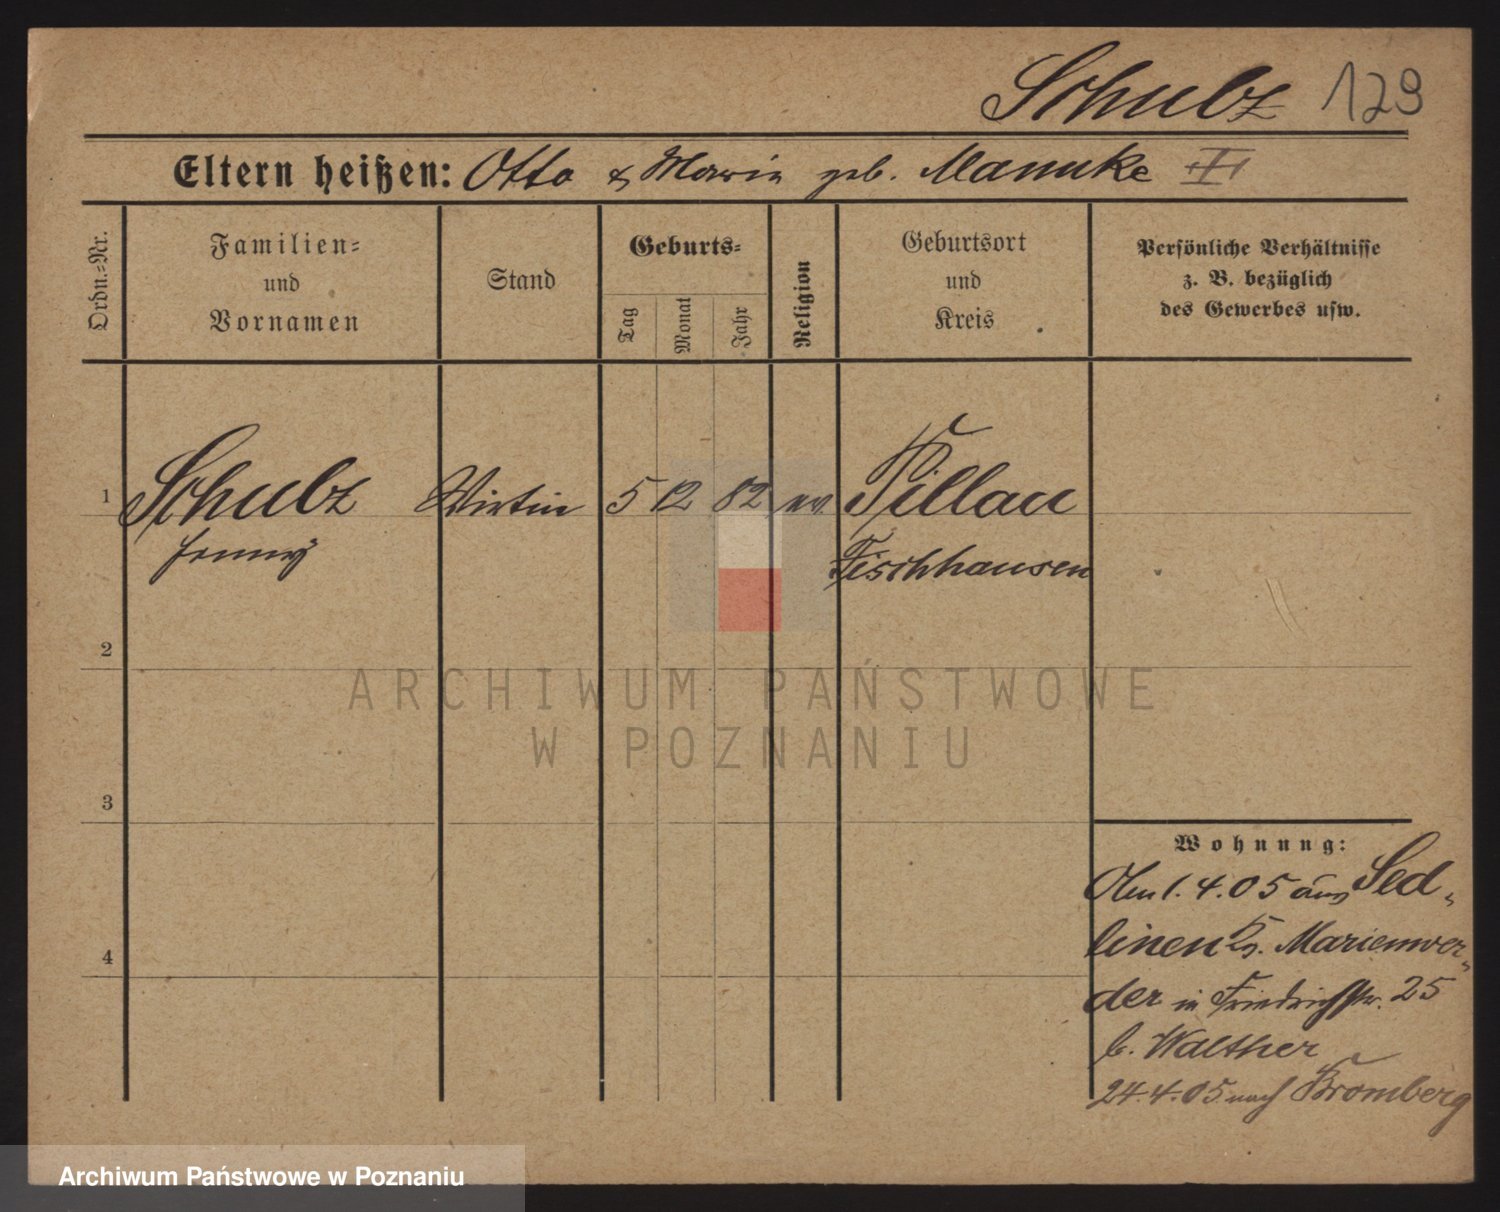 Schulz 129
Eltern heißen: Otto & Marie geb. Mannke II
Ordn.-Nr.
Familien-
und
Vornamen
Stand
Geburts-
Tag
Monat
Jahr
Religion
Geburtsort
und
Kreis
Persönliche Verhältnisse
z. B. bezüglich
des Gewerbes usw.
1 Schulz Wirtin 5 12 82 ev. Pillau
Jenny Fischhausen
2
ARCHIWUM PAŃSTWOWE
W POZNANIU
3
Wohnung:
Am 1. 4. 05 aus Sed-
linen Kr. Marienwer-
4
der in Friedrichstr. 25
b. Walther
24.4.05 nach Bromberg
Archiwum Państwowe w Poznaniu